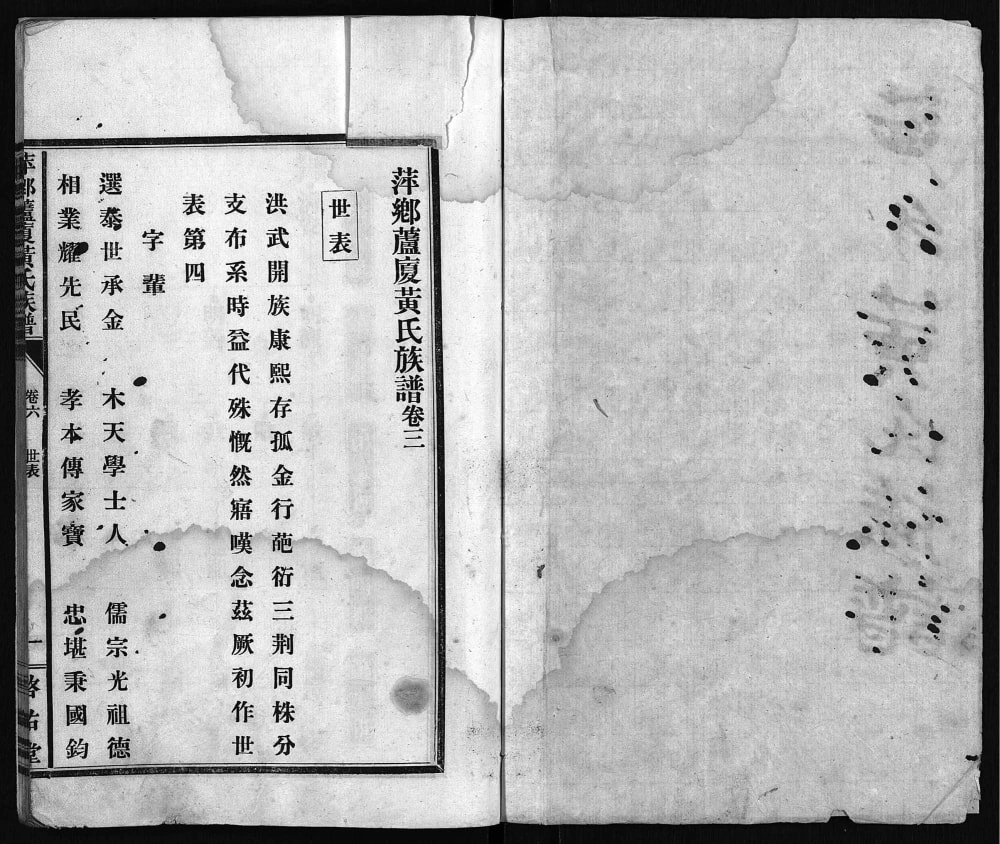 萍鄉蘆廈黃氏族譜卷三
世表
洪武開族康熙存孤金行葩衍三荆同株分
支布系時益代殊慨然寤嘆念茲厥初作世
表第四
字輩
選泰世承金 木天學士人 儒宗光祖德
相業耀先民 孝本傳家寶 忠堪秉國鈞
萍鄉蘆廈黃氏族譜 卷六 世表 一 啓祐堂